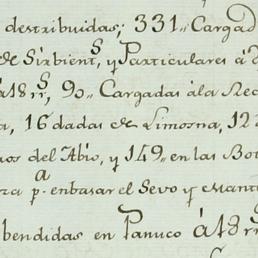 destribuidas; 331,, Cargad
de Sirbient^s, y Particulares á
á 18 r^s, 90,, Cargadas á la Rec
a, 16 dadas de Limosna, 12
os del Abío, y 149,, en las Bo
ra p.^a enbasar el Sevo y Mant
bendidas en Panuco á 18 r^s